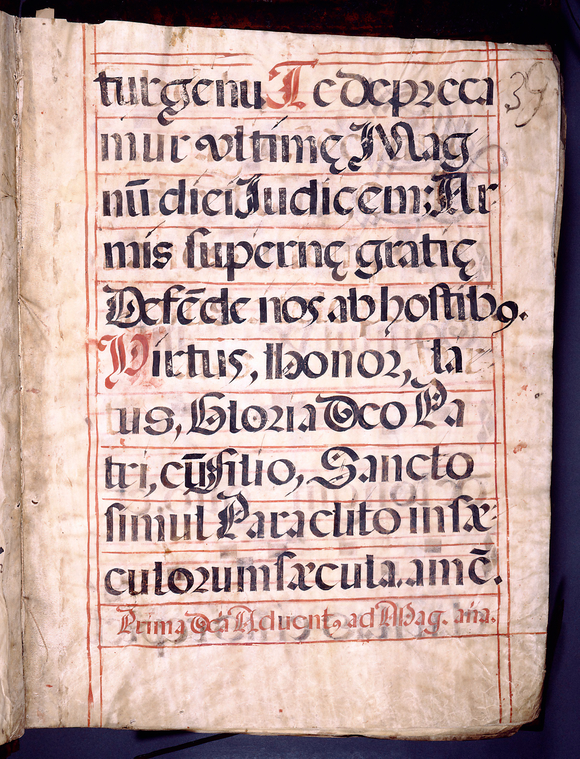 tur genu Te depreca
39
mur vltimę Mag
nū diei Iudicem: Ar
mis supernę gratię
Defēde nos ab hostibꝯ.
Virtus, Honor, la
us, Gloria Deo Pa
tri, cū Filio, Sancto
simul Paraclito in sæ
culorum sæcula. amē.
Prima Dca Aduentꝯ ad Mag. aña.